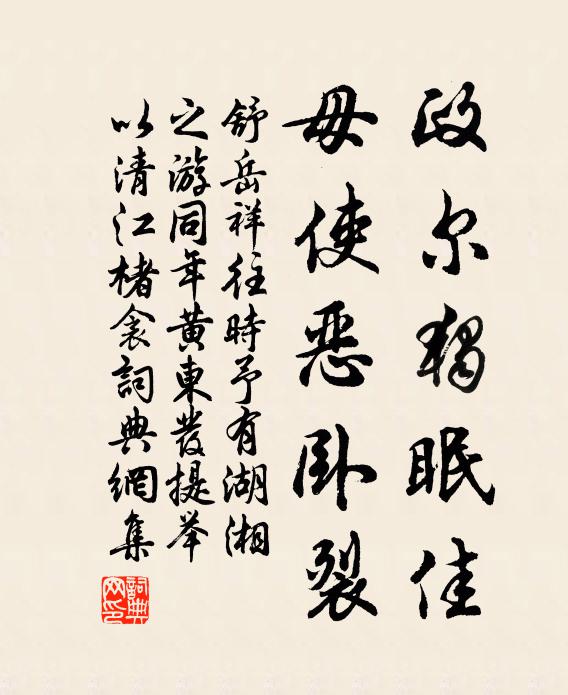 政尔独眠佳
毋使恶卧裂
舒岳祥往時予有湖湘
之游同年黄東發提举
以清江楮衾詞典網集
詞典网印